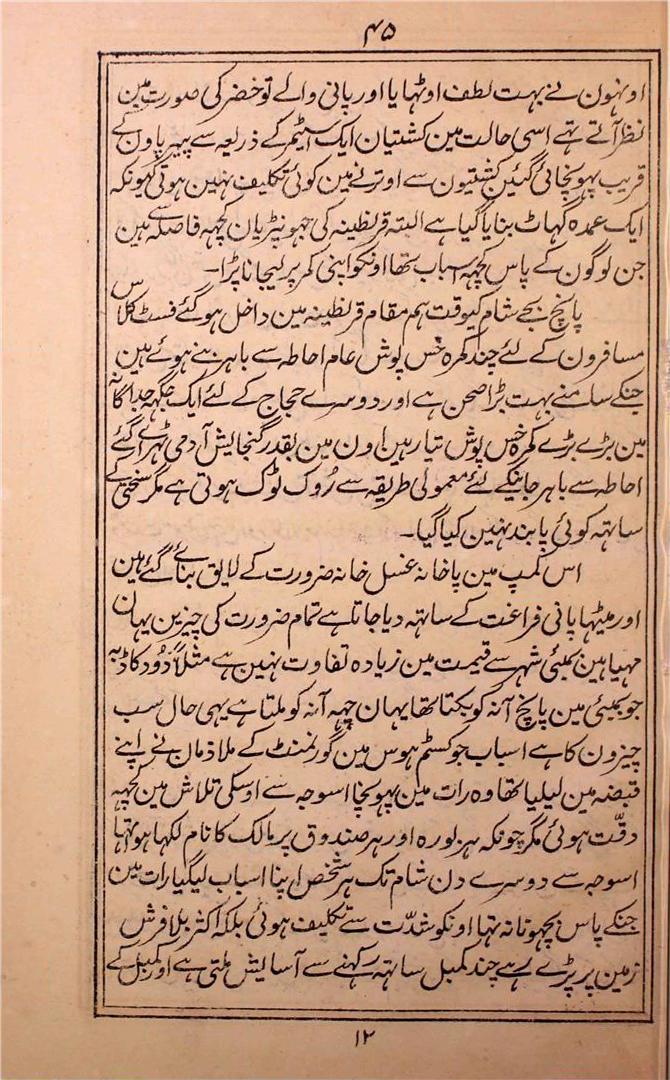 ۴۵
اونہون نے بہت لطف اوٹھایا اور پانی والے تو خضر کی صورت مین
نظر آتے تہے اسی حالت مین کشتیان ایک اسٹیمر کے ذریعہ سے پیر پاون کے
قریب پہونچائی گئین کشتیون سے اوترنے مین کوئی تکلیف نہین ہوتی کیونکہ
ایک عمدہ گہاٹ بنایا گیا ہے البتہ قرنطینہ کی جہونپڑیان کچہہ فاصلہ سے ہین
جن لوگون کے پاس کچہہ اسباب تھا اونکو اپنی کمر پر لیجانا پڑا۔
پانچ بجے شام کیوقت ہم مقام قرنطینہ مین داخل ہو گئے فسٹ کلاس
مسافرون کے لئے چند کمرہ خس پوش عام احاطہ سے باہر بنے ہوئے ہین
جنکے سامنے بہت بڑا صحن ہے اور دوسرے حجاج کے لئے ایک جگہہ جداگانہ
مین بڑے بڑے کمرہ خس پوش تیار ہین اون مین بقدر گنجایش آدمی ٹہرائے گئے
احاطہ سے باہر جانیکے لئے معمولی طریقہ سے رُوک ٹوک ہوتی ہے مگر سختی کے
ساتہہ کوئی پابند نہین کیا گیا۔
اس کمپ مین پاخانہ غسل خانہ ضرورت کے لایق بنائے گئے ہین
اور میٹہا پانی فراغت کے ساتہہ دیا جاتا ہے تمام ضرورت کی چیزین یہان
مہیا ہین بمبئی شہر سے قیمت مین زیادہ تفاوت نہین ہے مثلاً دُودکا ڈبہ
جو بمبئی مین پانچ آنہ کو بکتا تھا یہان چہہ آنہ کو ملتا ہے یہی حال سب
چیزون کا ہے اسباب جو کسٹم ہوس مین گورنمنٹ کے ملازمان نے اپنے
قبضہ مین لیلیا تھا وہ رات مین پہونچا اسوجہ سے اوسکی تلاش مین کچہہ
دقّت ہوئی مگر چونکہ ہر بورہ اور ہر صندوق پر مالک کا نام لکہا ہوا تہا
اسوجہ سے دوسرے دن شام تک ہر شخص اپنا اسباب لیگیا رات مین
جنکے پاس بچہونا نہ تہا اونکو شدّت سے تکلیف ہوئی بلکہ اکثر بلا فرش
زمین پر پڑے رہے چند کمبل ساتہہ رکہنے سے آسایش ملتی ہے اور کمبل کے
۱۲